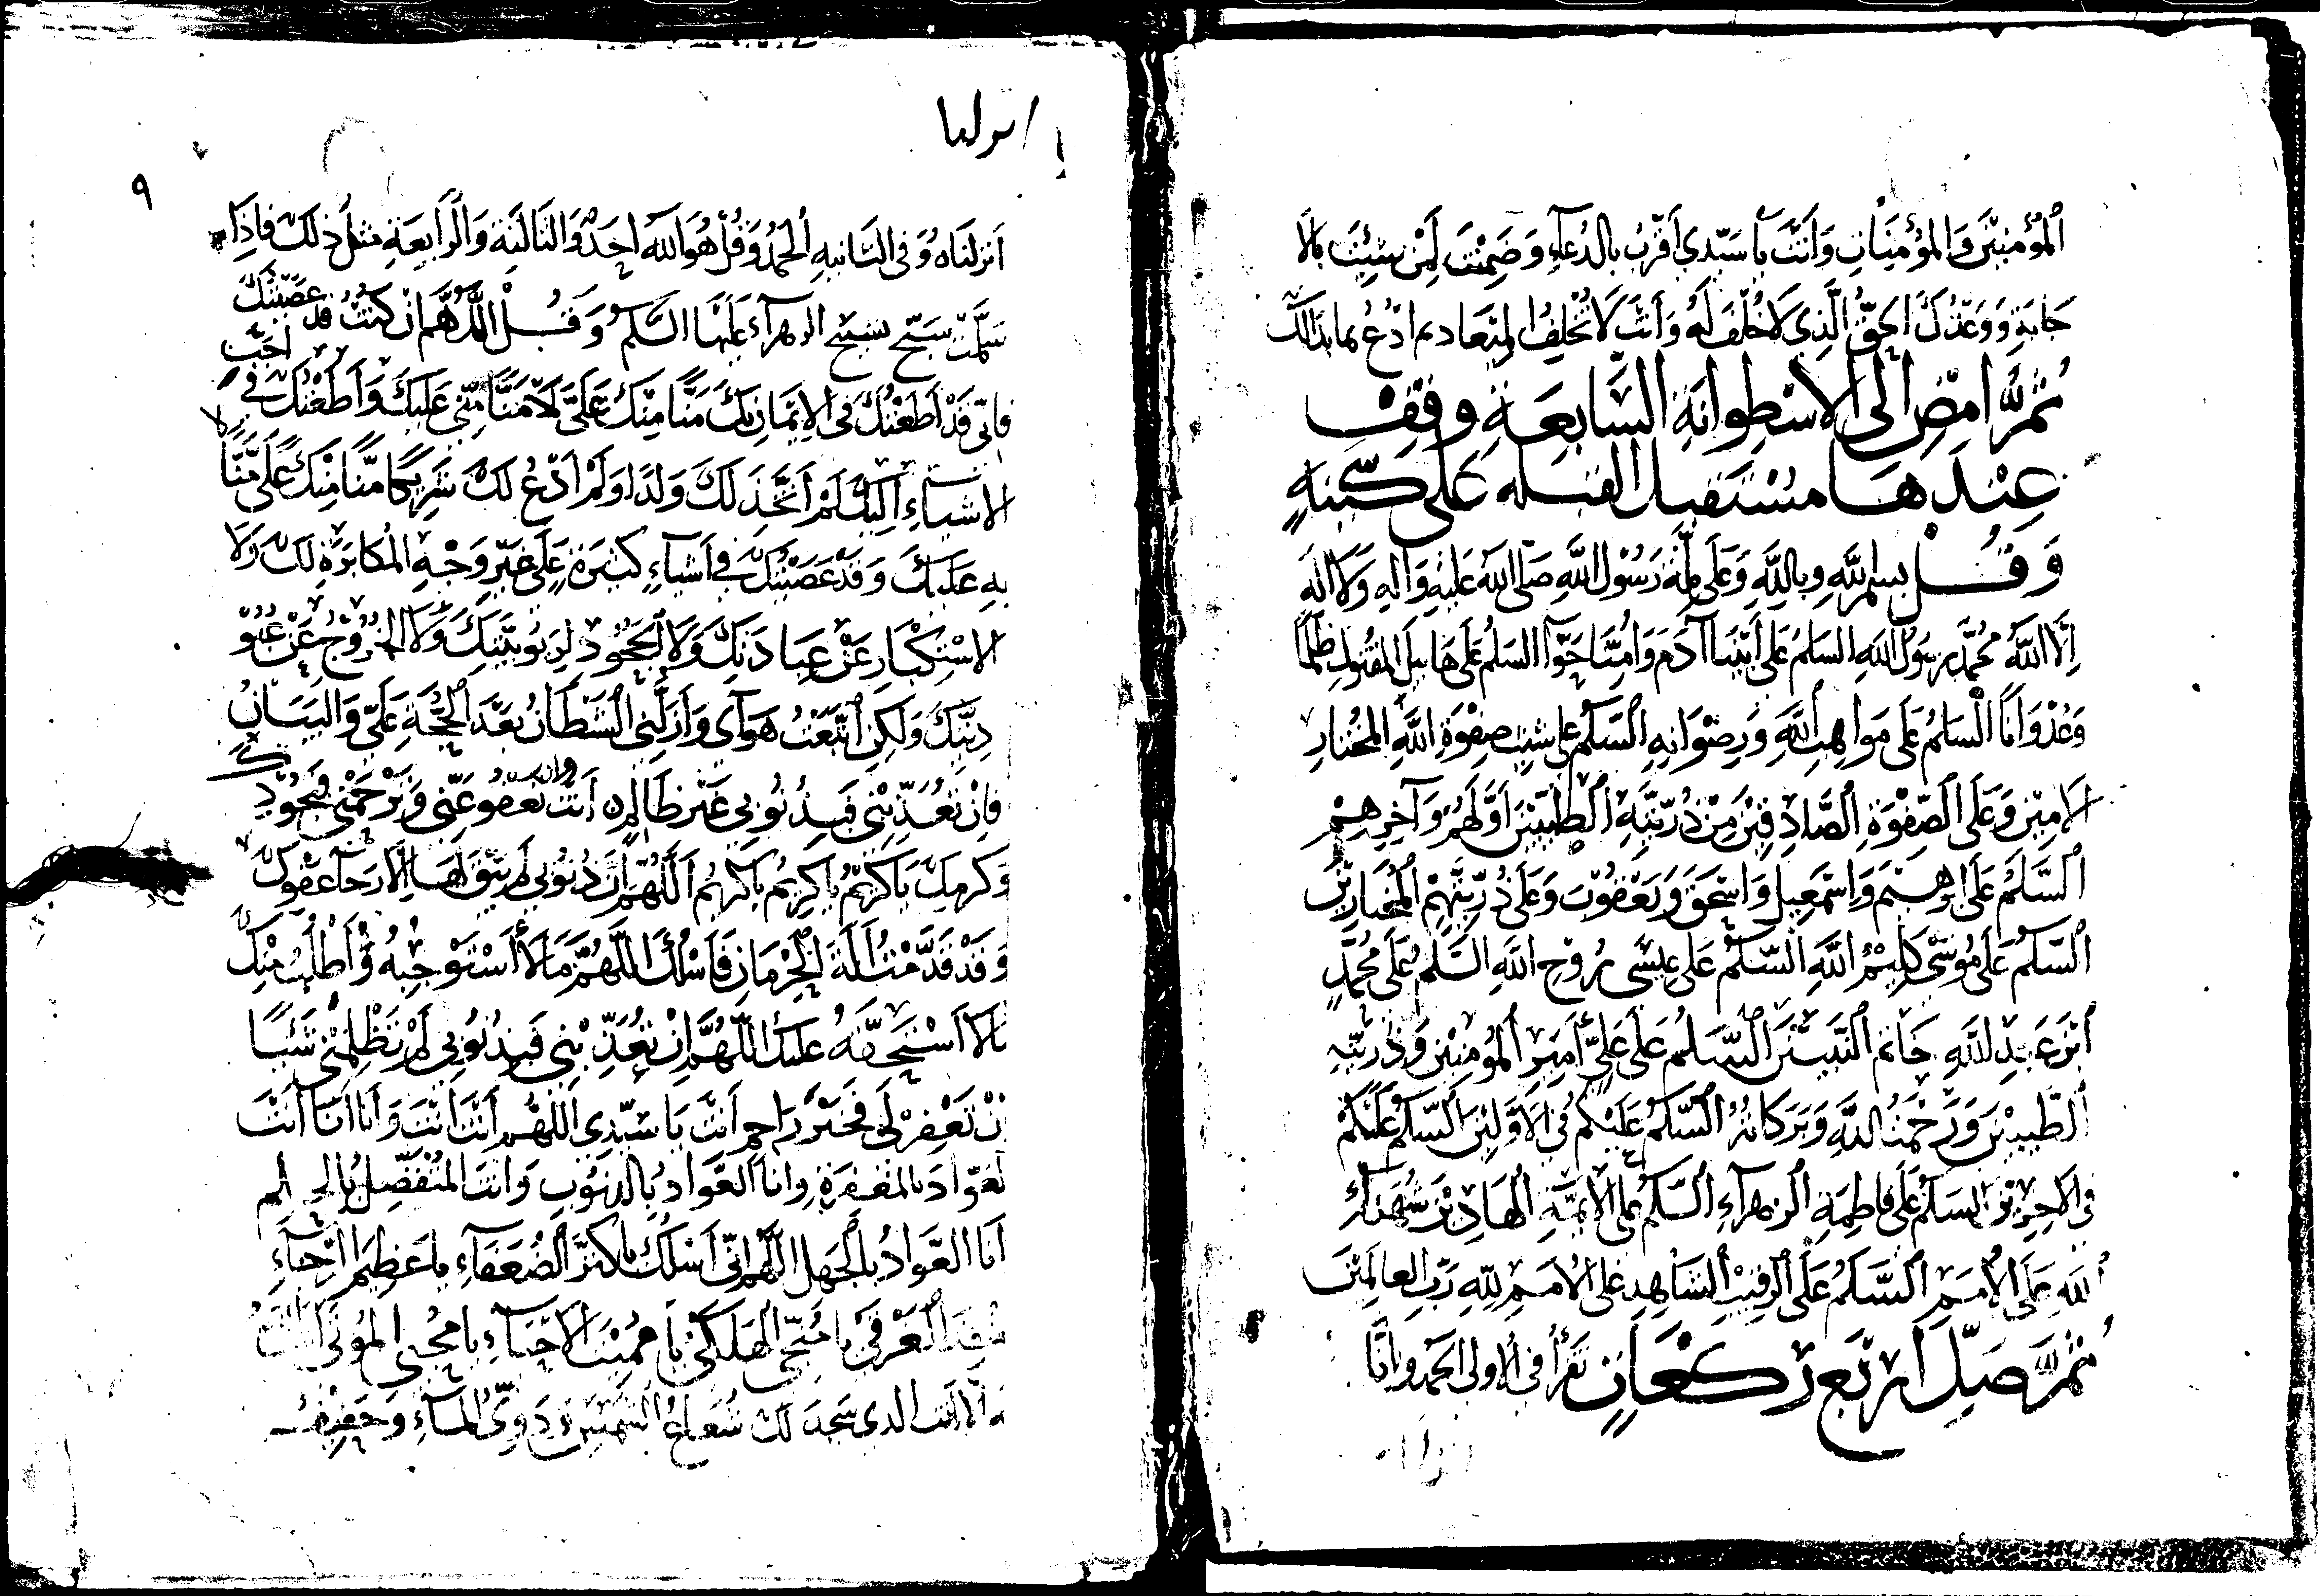 المُؤمنِينَ وَالمُؤمِنَاتِ وَأنتَ يا سَيّدي أقرَبُ بالدُعآءِ وَضَمِنتَ لِمَن شِئتَ بالا
جَابَةِ وَوَعْدُكَ الحَقُّ الَّذِي لَا خُلْفَ لَهُ وَأنتَ لَا تُخْلِفُ المِيعَاد ثم ادْعُ بما بدا لكَ
ثُمَّ امضِ إلى الاسْطِوانَةِ السَّابِعَةِ وقِفْ
عِنْدَهَا مسْتَقبلَ القبلة عَلَى سَكِينَةٍ
وَقُلْ بسمِ اللَّهِ وباللَّهِ وَعَلى مِلَّةِ رَسُولِ اللَّهِ صَلى اللهُ عَليهِ وَآلِهِ وَلَا الهَ
إلَّا اللَّهُ مُحَمَّدٌ رَسُولُ اللَّهِ السَلمُ عَلى أبِينَا آدَمَ وَأُمِّنَا حَوّآ السَلمُ عَلى هَابيلَ المَقتُولِ ظُلماً
وَعُدْوَاناً السَلمُ عَلى مَوَاهِبِ اللَّهِ وَرِضْوَانِهِ السَلمُ على شيثٍ صِفْوَةِ اللَّهِ المُختارِ
الامِينِ وَعَلَى الصِّفْوَةِ الصَّادِقِينَ مِنْ ذُرّيَّتِهِ الطَيِّبِينَ أوَّلهُمْ وَآخِرِهِمْ
السَلمُ عَلى ابرهيمَ وَاسْمَعِيلَ وَاسْحَقَ وَيَعْقُوبَ وَعَلى ذُرّيَّتِهِمُ المُخْتَارِينَ
السَلمُ عَلى مُوسَى كَلِيمِ اللَّهِ السَلمُ عَلى عِيسَى رُوحِ اللَّهِ السَلمُ عَلى مُحَمَّدٍ
ابْنِ عَبدِ اللَّهِ خَاتَمِ النَّبِيِّينَ السَلمُ عَلَى عَلِيٍّ أمِيرِ المُؤمِنِينَ وَذُرّيَّتِهِ
الطَّيِّبِينَ وَرَحْمَتُ اللَّهِ وَبَرَكَاتُهُ السَلمُ عَلَيْكُم فِي الأَوَّلِينَ السَلمُ عَلَيْكُم
في الاخِرِينَ السَلمُ عَلَى فَاطِمَةِ الزهرآءِ السَلمُ عَلَى الأئِمَّةِ الهَادِينَ شُهَدَآءِ
اللهِ عَلَى الأُمَمِ السَلمُ عَلَى الرقِيبِ الشَاهِدِ عَلى الأُمَمِ لِلَّهِ رَبِّ العالَمِينَ
ثُمَّ صَلِّ أربَع ركعَاتٍ تَقرَأُ في الأولى الحَمد وَانّا
انزلنا
٩
اَنزلنَاهُ وَفي الثَانيهِ الحَمدُ وَقُل هُوَ اللهُ احَدٌ وَالثَالثَة وَالرَّابعَةِ مثلَ ذلكَ فاذَا
سَلّمتَ سَبّح تسبيح الزهرآءَ عَلَيْهَا السَّلَمُ وَقُلِ اللَّهُمَّ ان كنتُ قَد عَصَيْتُكَ
فانّي قَدْ أطَعْتُكَ في الاِيمَانِ بِكَ مَنًّا مِنْكَ عَلَيَّ لَا مَنًّا مِنّي عَلَيكَ وَأطَعْتُكَ في أحَبِّ
الاشياءِ الَيكَ لَمْ أتَّخِذ لَكَ وَلَدًا وَلَمْ أدْعُ لَكَ شَرِيكًا مَنًّا مِنْكَ عَلَيَّ لا مَنًّا
بِهِ عَلَيكَ وَقَدْ عَصَيْتُكَ في أشيآءَ كَثِيرَةٍ عَلَى غَيرِ وَجْهِ المُكَابَرَةِ لَكَ وَلَا
الاِسْتِكْبَارِ عَنْ عِبَادَتِكَ وَلَا الجُحُودِ لِرُبُوبِيَّتِكَ وَلَا الخُرُوجِ عَنْ
دِينكَ وَلَكِنِ اتَّبَعْتُ هَوَآي وَأزَلَّنِي الشَيْطَانُ بَعْدَ الحُجَّةِ عَلَيَّ وَالبَيَانِ
فاِنْ تُعَذّبْني فَبِذُنُوبي غَيْرَ ظَالِمٍ وإن أنتَ تَعفُو عَنّي وَتَرْحَمْنِي فَبِجُودِكَ
وَكَرمِكَ يَا كَرِيمُ يا كَرِيمُ يا كَرِيمُ اَللَّهُمَّ اِنَّ ذُنُوبي لَم يَبْقَ لَهَا اِلَّا رَجآءُ عَفْوِكَ
وَقَدْ قَدَّمْتُ آلَةَ الحِرْمَانِ فَأسْئَلُكَ اللَّهُمَّ مَا لَا أسْتَوْجِبُهُ وَأطْلُبُ مِنْكَ
مالَا أسْتَحِقُّهُ عَلَيكَ اللَّهُمَّ إنْ تُعَذّبْني فَبِذُنُوبي لَمْ تَظْلِمْنِي شَيْئًا
نْ تَغْفِرْ لي فَخَيْرُ رَاحِمٍ أنتَ يَا سَيّدِي اللَّهُمَّ أنتَ أنتَ وَأنَا أنَا أنتَ
لعَوّادُ بالمَغفِرَةِ وانَا العَوّادُ بالذنُوبِ وَأنتَ المُتَفَضّلُ بالحِلمِ
أنَا العَوّادُ بالجَهلِ اللّهُمَّ انّي اَسْئلُكَ يا كَنزَ الضُعَفَآءِ يا عَظِيمَ الرَّجآءِ
مُنقِذَ الغَرْقَى يا مُنَجّي الهَلكَى يا مُمِيتَ الاحيآءِ يا مُحيِيَ المَوْتَى أنتَ
الَّا أنتَ الذي سَجدَ لَكَ شُعَاعُ الشَّمْسِ وَدَوِيُّ المآءِ وَحَفِيفُ